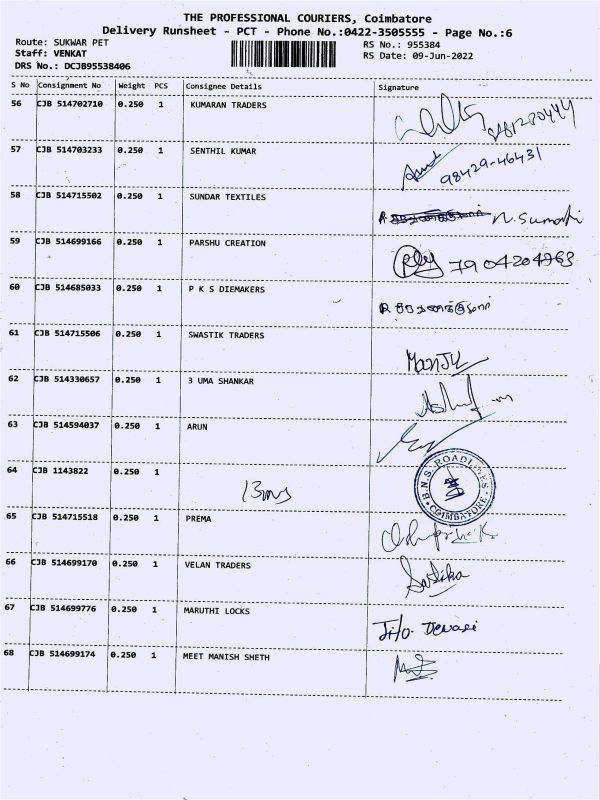 THE PROFESSIONAL COURIERS, Coimbatore
Delivery Runsheet - PCT - Phone No.:0422-3505555 - Page No.:6
Route: SUKWAR PET
RS No.: 955384
Staff: VENKAT
RS Date: 09-Jun-2022
DRS No.: DCJB95538406
S No Consignment No Weight PCS Consignee Details Signature
56 CJB 514702710 0.250 1 KUMARAN TRADERS
57 CJB 514703233 0.250 1 SENTHIL KUMAR 98429-46431
58 CJB 514715502 0.250 1 SUNDAR TEXTILES N. Sumathi
59 CJB 514699166 0.250 1 PARSHU CREATION 7904204763
60 CJB 514685033 0.250 1 P K S DIEMAKERS
61 CJB 514715506 0.250 1 SWASTIK TRADERS Manju
62 CJB 514330657 0.250 1 3 UMA SHANKAR
63 CJB 514594037 0.250 1 ARUN
64 CJB 1143822 0.250 1 B.N.S. ROADLINES COIMBATORE
65 CJB 514715518 0.250 1 PREMA
66 CJB 514699170 0.250 1 VELAN TRADERS
67 CJB 514699776 0.250 1 MARUTHI LOCKS
68 CJB 514699174 0.250 1 MEET MANISH SHETH